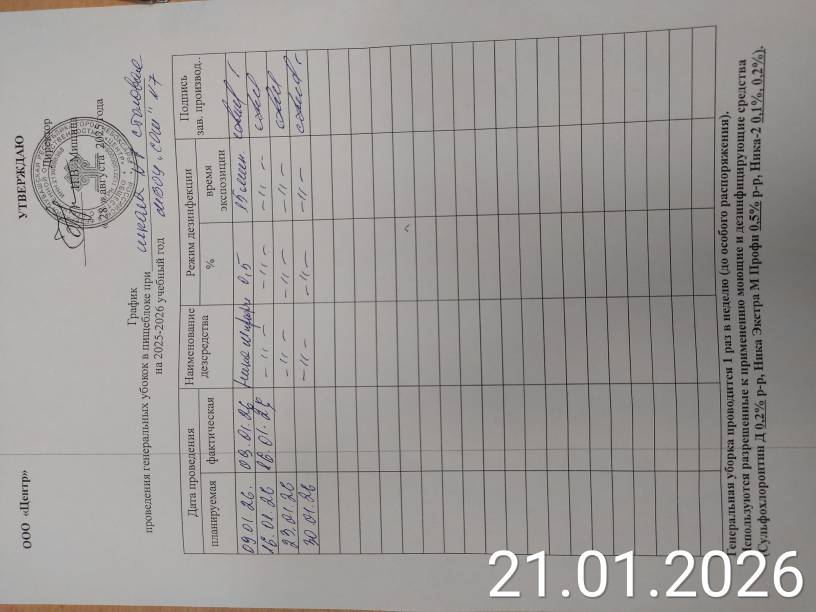 ООО «Центр»
УТВЕРЖДАЮ
Директор
Н.В. Мишина
« 28 » августа 2025 года
График
проведения генеральных убокок в пищеблоке при школа № 7 столовая
на 2025-2026 учебный год МБОУ „СОШ" №7
Дата проведения Наименование дезсредства Режим дезинфекции Подпись зав. производ..
планируемая фактическая % время экспозиции
09.01.26. 09.01.26 Ника м профи 0,5 15 мин.
16.01.26 16.01.26 -〃- -〃- -〃-
23.01.26 -〃- -〃- -〃-
30.01.26 -〃- -〃- -〃-
Генеральная уборка проводится 1 раз в неделю (до особого распоряжения).
Используются разрешенные к применению моющие и дезинфицирующие средства
(Сульфохлоронтин Д 0,2% р-р, Ника Экстра М Профи 0,5% р-р, Ника-2 0,1%, 0,2%).
21.01.2026